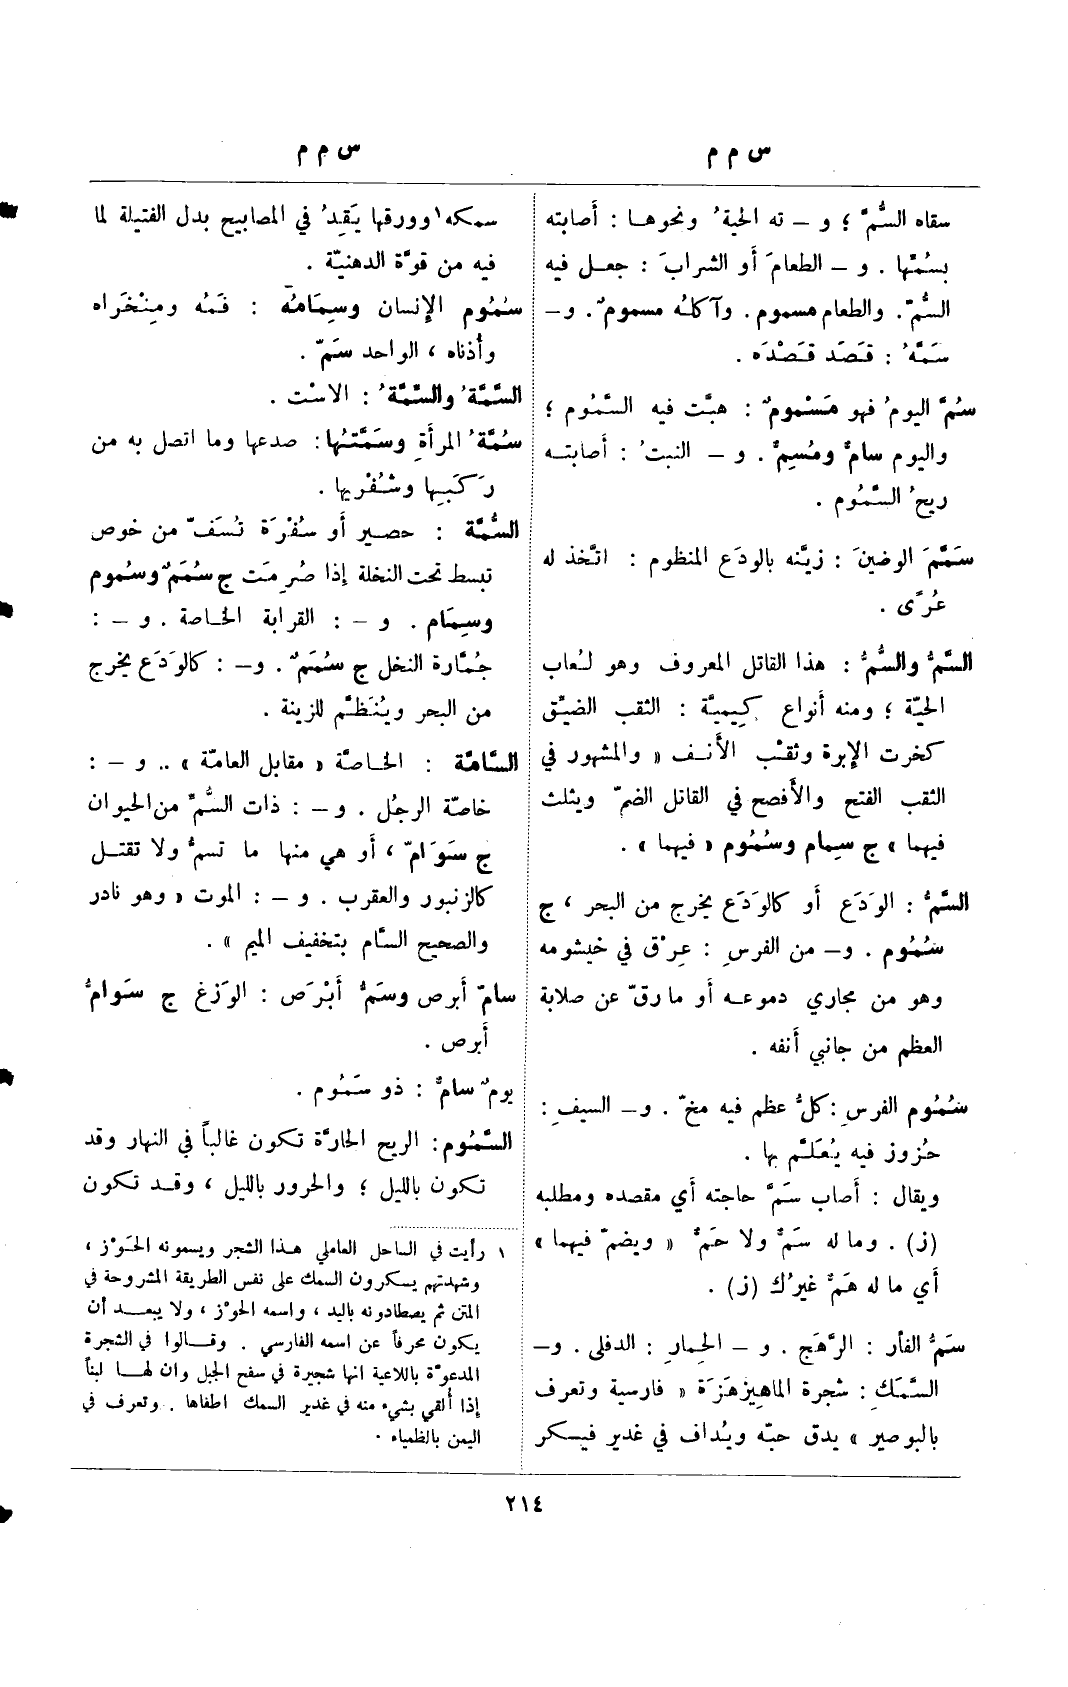 س م م
س م م
سقاه السُّمَّ ؛ و – ته الحيةُ ونحوها : أصابته
بسُمّها . و – الطعامَ أو الشرابَ : جعل فيه
السُّمّ . والطعام مسموم . وآكلُه مسمومٌ . و–
سَمَّهُ : قَصَد قَصْدَه .
سُمَّ اليومُ فهو مَسْمومٌ : هبَّت فيه السَّمُوم ؛
واليوم سامٌّ ومُسِمٌّ . و – النبتُ : أصابته
ريحُ السَّمُوم .
سَمَّمَ الوضينَ : زيَّنه بالودَع المنظوم : اتَّخذ له
عُرًى .
السَّمُّ والسُّمُّ : هذا القاتل المعروف وهو لُعاب
الحيّة ؛ ومنه أنواع كِيميَّة : الثقب الضيّق
كخرت الإبرة وثقْب الأنف « والمشهور في
الثقب الفتح والأفصح في القاتل الضمّ ويثلث
فيهما » ج سِمام وسُمُوم « فيهما » .
السَّمُّ : الوَدَع أو كالوَدَع يخرج من البحر ، ج
سُمُوم . و– من الفرسِ : عِرْق في خيشومه
وهو من مجاري دموعه أو ما رقّ عن صلابة
العظم من جانبي أنفه .
سُمُوم الفرسِ : كلُّ عظم فيه مخّ . و– السيفِ :
حُزوز فيه يُعَلَّم بها .
ويقال : أصاب سَمَّ حاجته أي مقصده ومطلبه
(ز) . وما له سَمٌّ ولا حَمٌّ « ويضمّ فيهما »
أي ما له هَمٌّ غيرُك (ز) .
سَمُّ الفأر : الرَّهَج . و – الحِمارِ : الدفلى . و–
السَّمَكِ : شجرة الماهِيزهَرَة « فارسية وتعرف
بالبوصير » يدق حبّه ويُداف في غدير فيسكر
سمكه¹ وورقها يَقِدُ في المصابيح بدل الفتيلة لما
فيه من قوَّة الدهنيّة .
سُمُوم الإنسان وسِمَامُه : فَمُه ومِنْخَراه
وأُذناه ، الواحد سَمّ .
السَّمَّةُ والسِّمَّةُ : الاسْت .
سُمَّةُ المرأةِ وسَمَّتُها : صدعها وما اتصل به من
رَكَبِها وشُفْريها .
السُّمَّة : حصير أو سُفْرَة تُسَفّ من خوص
تبسط تحت النخلة إذا صُرِمَت ج سُمَمٌ وسُموم
وسِمَام . و – : القرابة الخاصة . و – :
جُمَّارة النخل ج سُمَمٌ . و– : كالوَدَع يخرج
من البحر ويُنَظَّم للزينة .
السَّامَّة : الخاصَّة « مقابل العامّة » .. و – :
خاصّة الرجُل . و – : ذات السُّمِّ من الحيوان
ج سَوَامّ ، أو هي منها ما تسمُّ ولا تقتل
كالزنبور والعقرب . و – : الموت « وهو نادر
والصحيح السَّام بتخفيف الميم » .
سامّ أبرص وسَمُّ أبْرَص : الوَزَغ ج سَوامُّ
أبرص .
يومٌ سامٌّ : ذو سَمُوم .
السَّمُوم : الريح الحارَّة تكون غالباً في النهار وقد
تكون بالليل ؛ والحرور بالليل ، وقد تكون
١ رأيت في الساحل العاملي هذا الشجر ويسمونه الحَوْز ،
وشهدتهم يسكرون السمك على نفس الطريقة المشروحة في
المتن ثم يصطادونه باليد ، واسمه الحوْز ، ولا يبعد أن
يكون محرفاً عن اسمه الفارسي . وقالوا في الشجرة
المدعوّة باللاعية انها شجيرة في سفح الجبل وان لها لبناً
إذا أُلقي بشيء منه في غدير السمك اطفاها . وتعرف في
اليمن بالظمياء .
٢١٤